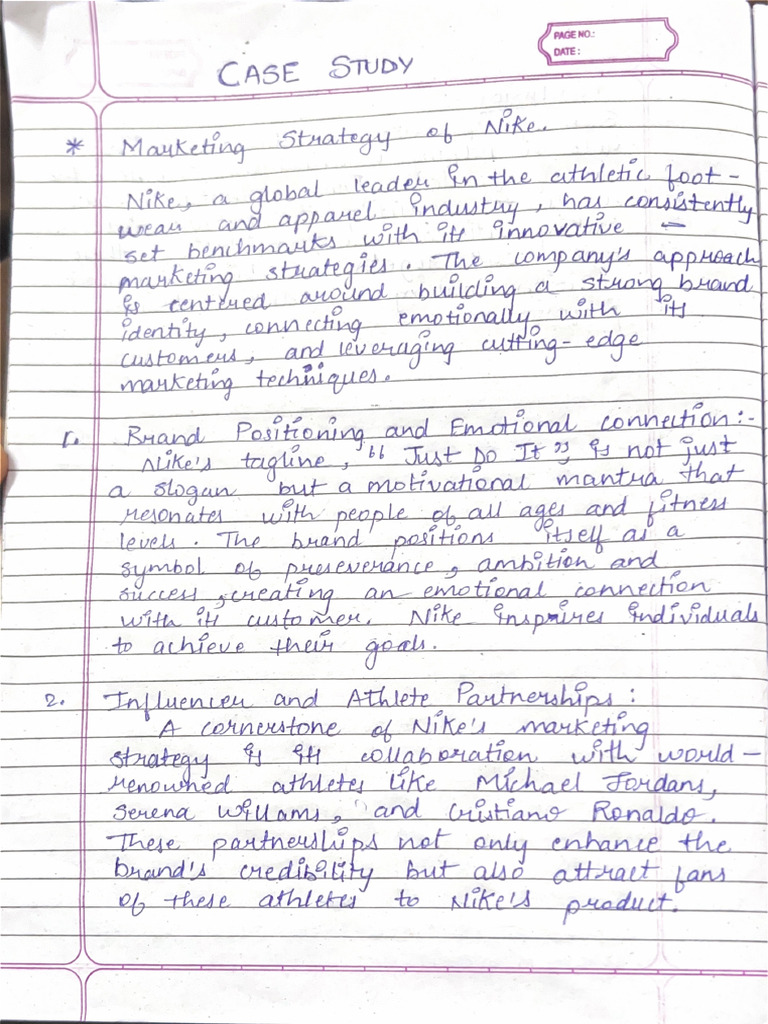 PAGE NO.:
DATE:
CASE STUDY
* Marketing Strategy of Nike.
Nike, a global leader in the athletic foot-
wear and apparel industry, has consistently
set benchmarks with its innovative -
marketing strategies. The company's approach
is centered around building a strong brand
identity, connecting emotionally with its
customers, and leveraging cutting-edge
marketing techniques.
1. Brand Positioning and Emotional connection:-
Nike's tagline, "Just Do It" is not just
a slogan but a motivational mantra that
resonates with people of all ages and fitness
levels. The brand positions itself as a
symbol of preseverance, ambition and
success, creating an emotional connection
with its customer. Nike inspires individuals
to achieve their goals.
2. Influencer and Athlete Partnerships:
A cornerstone of Nike's marketing
strategy is its collaboration with world-
renowned athletes like Michael Jordans,
Serena Willams, and Cristiano Ronaldo.
These partnerships not only enhance the
brand's credibility but also attract fans
of these athletes to Nike's product.